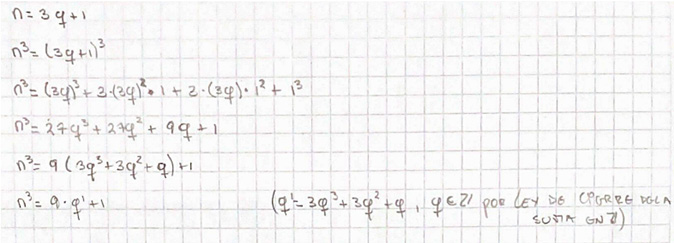 n = 3q+1
n³ = (3q+1)³
n³ = (3q)³ + 2·(3q)²·1 + 2·(3q)·1² + 1³
n³ = 27q³ + 27q² + 9q + 1
n³ = 9(3q³+3q²+q)+1
n³ = 9·q'+1 (q' = 3q³+3q²+q, q∈ℤ POR LEY DE
SUMA EN ℤ)